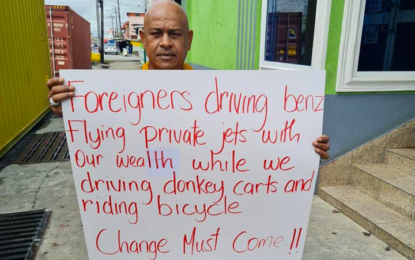 Foreigners driving benz
Flying private jets with
Our wealth while we
driving donkey carts and
riding bicycle
Change Must Come!!